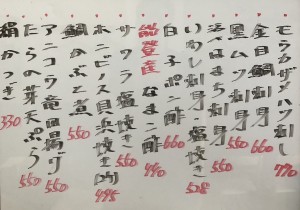 モウカザメハツ刺し 770
金目鯛刺身 660
黒ムツ刺身 550
いわし刺身 塩焼き 528
白子ポン酢 660
能登産なまこ酢 440
サワラ塩焼き 550
ホンビノス貝浜焼き 495
鯛かぶと煮 550
アンコウ竜田揚げ 550
たらの芽天ぷら 550
絹かつぎ 330